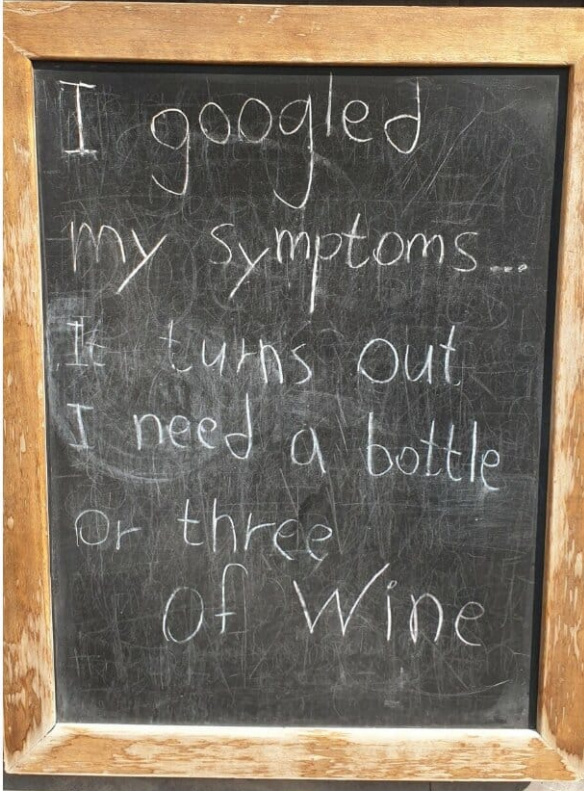 I googled
my symptoms...
It turns out
I need a bottle
or three
of Wine